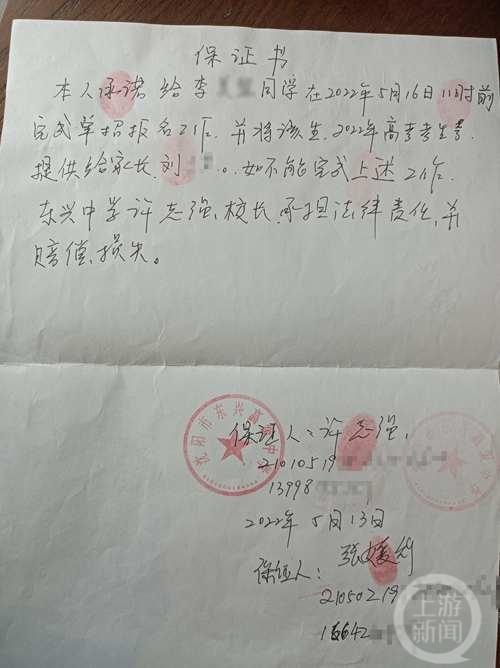 保证书
本人承诺给李 同学在2022年5月16日11时前
完成单招报名工作.并将该生.2022年高考考生号
提供给家长.刘 。如不能完成上述工作.
东兴中学许志强.校长.承担法律责任.并
赔偿.损失。
保证人:许志强,
沈阳市东兴高级中学
21010519
13998
2022年5月13日
保证人:
21050219
15642
上游新闻